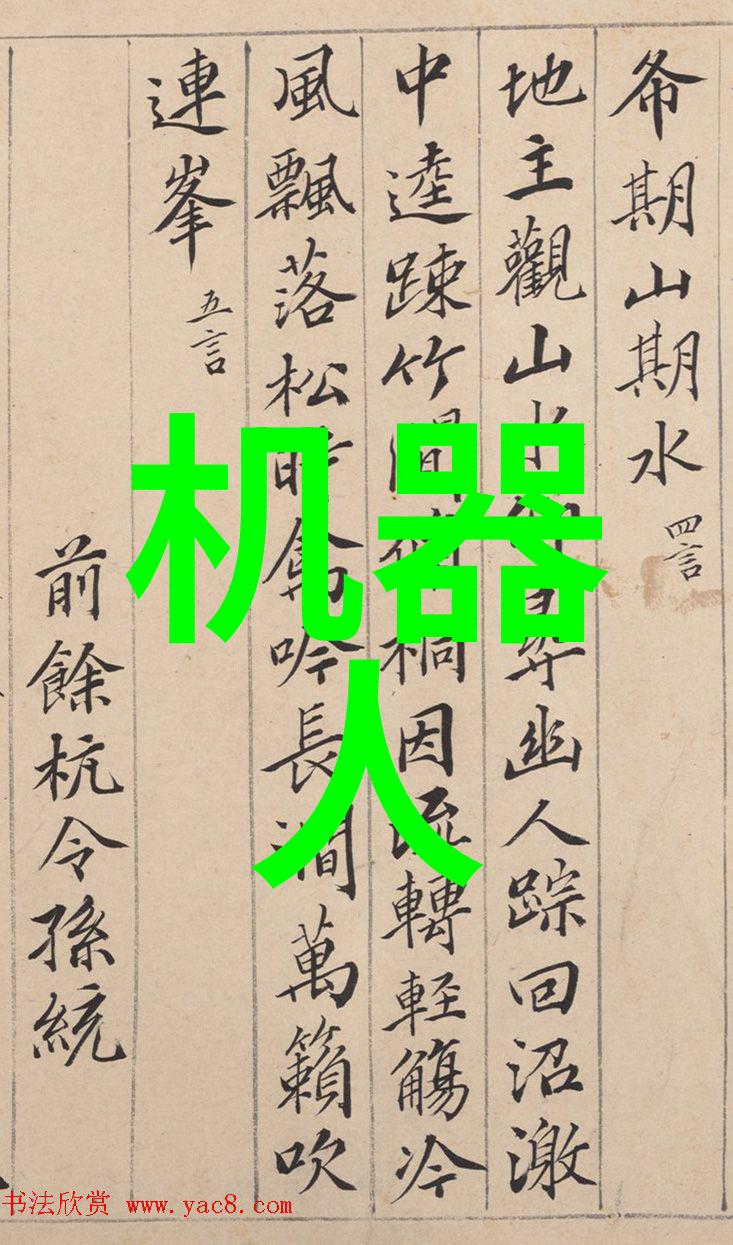 希期山期水 四言
地主觀山水尋幽人踪回沼激
中逵踈竹間桐因流轉輕觴冷
風飄落松時禽吟長澗萬籟吹
連峯 五言
前餘杭令孫統
机器
人
书法欣赏 www.yac8.com